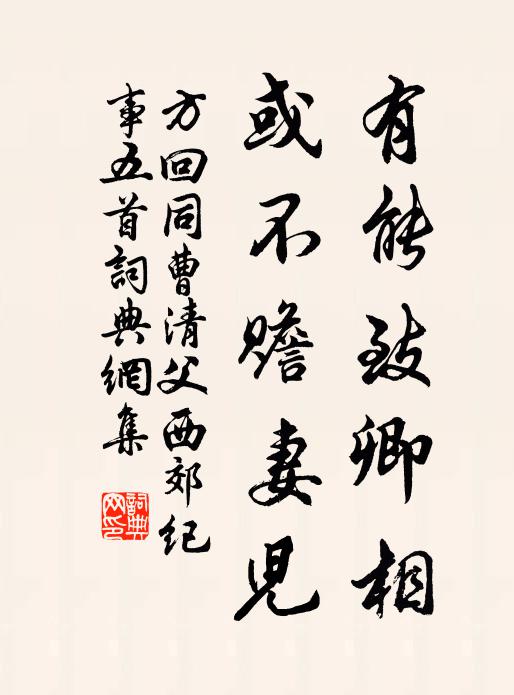 有能致卿相
或不赡妻児
方回同曹清父西郊纪
事五首詞典網集
詞典
网印